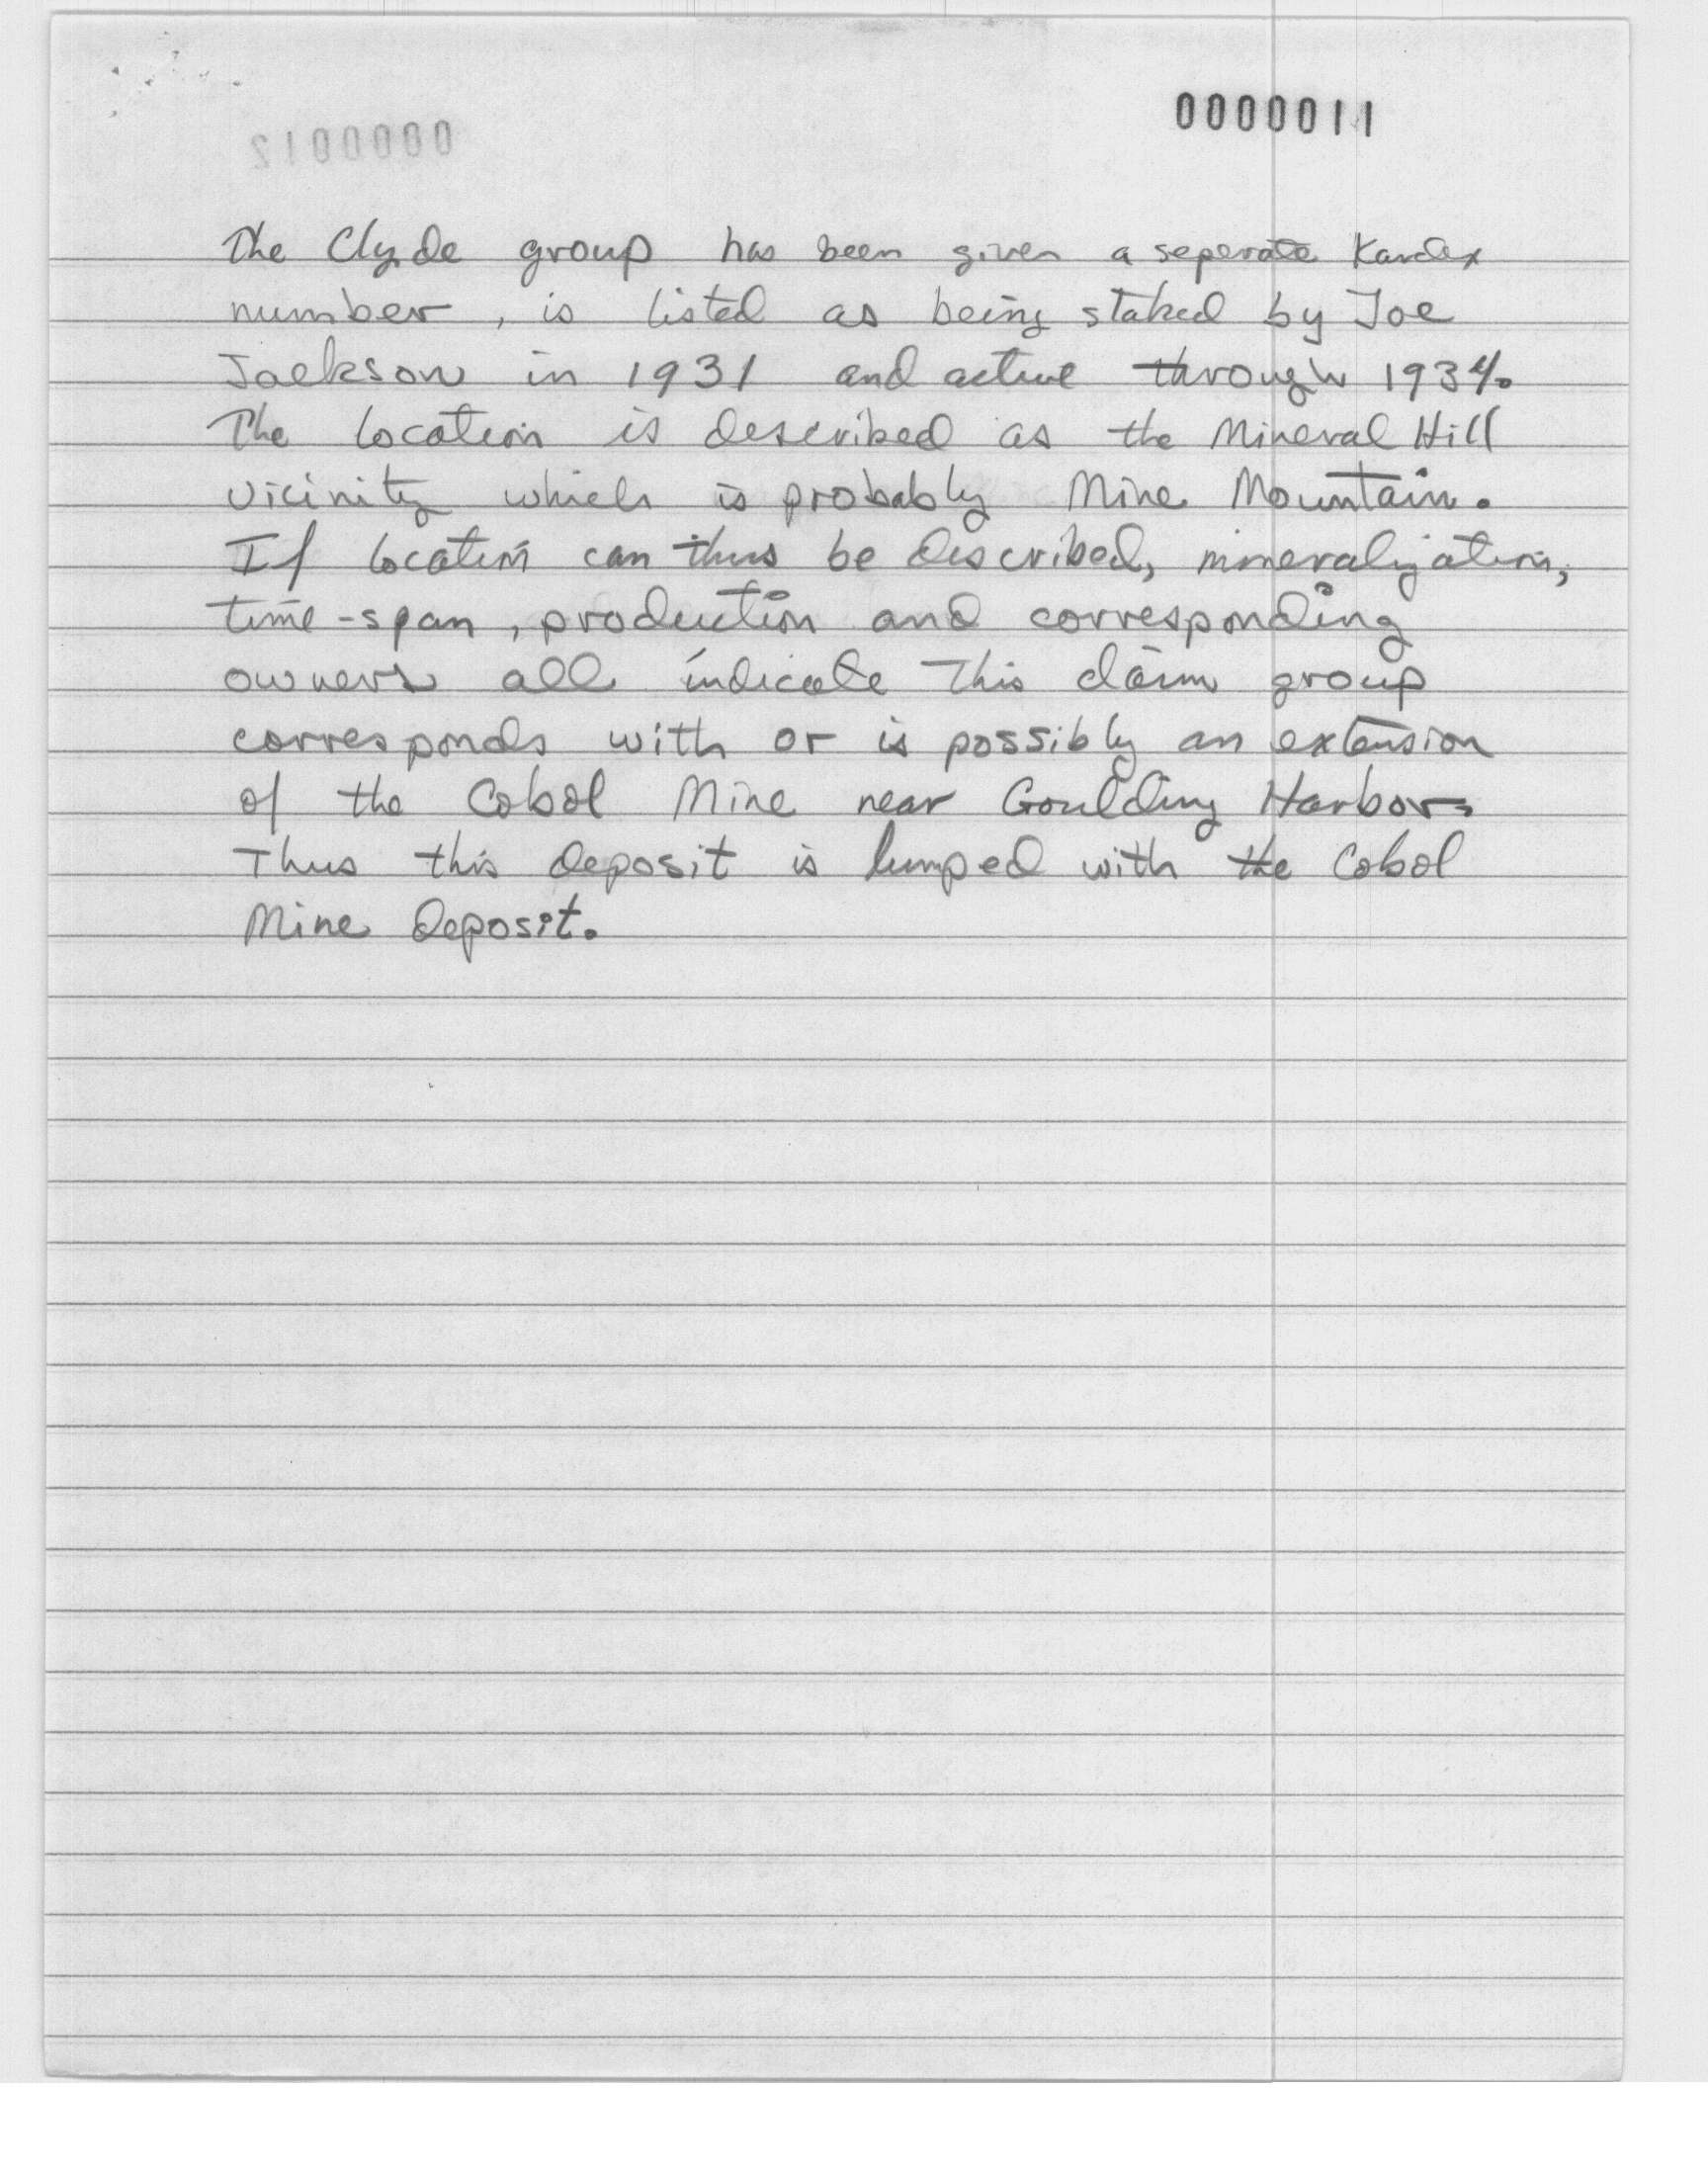 0000011
0000012
The Clyde group has been given a seperate Kardex
number, is listed as being staked by Joe
Jackson in 1931 and active through 1934.
The location is described as the Mineral Hill
vicinity which is probably Mine Mountain.
If location can thus be described, mineralization,
time-span, production and corresponding
owners all indicate this claim group
corresponds with or is possibly an extension
of the Cobol Mine near Goulding Harbor.
Thus this deposit is lumped with the Cobol
Mine deposit.